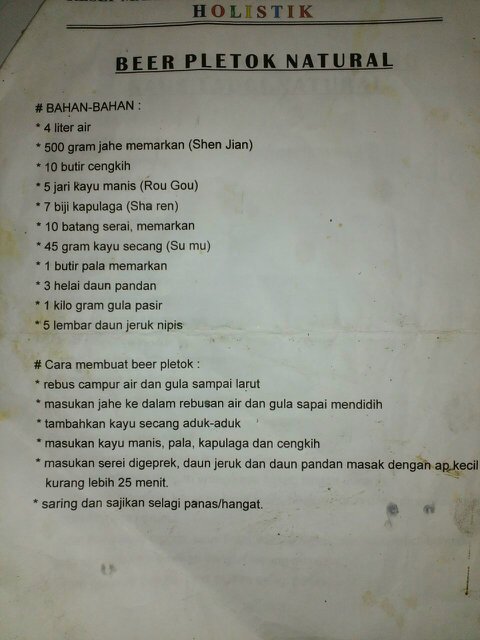 HOLISTIK
BEER PLETOK NATURAL
# BAHAN-BAHAN :
* 4 liter air
* 500 gram jahe memarkan (Shen Jian)
* 10 butir cengkih
* 5 jari kayu manis (Rou Gou)
* 7 biji kapulaga (Sha ren)
* 10 batang serai, memarkan
* 45 gram kayu secang (Su mu)
* 1 butir pala memarkan
* 3 helai daun pandan
* 1 kilo gram gula pasir
* 5 lembar daun jeruk nipis
# Cara membuat beer pletok :
* rebus campur air dan gula sampai larut
* masukan jahe ke dalam rebusan air dan gula sapai mendidih
* tambahkan kayu secang aduk-aduk
* masukan kayu manis, pala, kapulaga dan cengkih
* masukan serei digeprek, daun jeruk dan daun pandan masak dengan ap kecil
kurang lebih 25 menit.
* saring dan sajikan selagi panas/hangat.